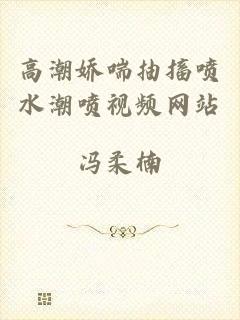 高潮娇喘抽搐喷
水潮喷视频网站
冯柔楠